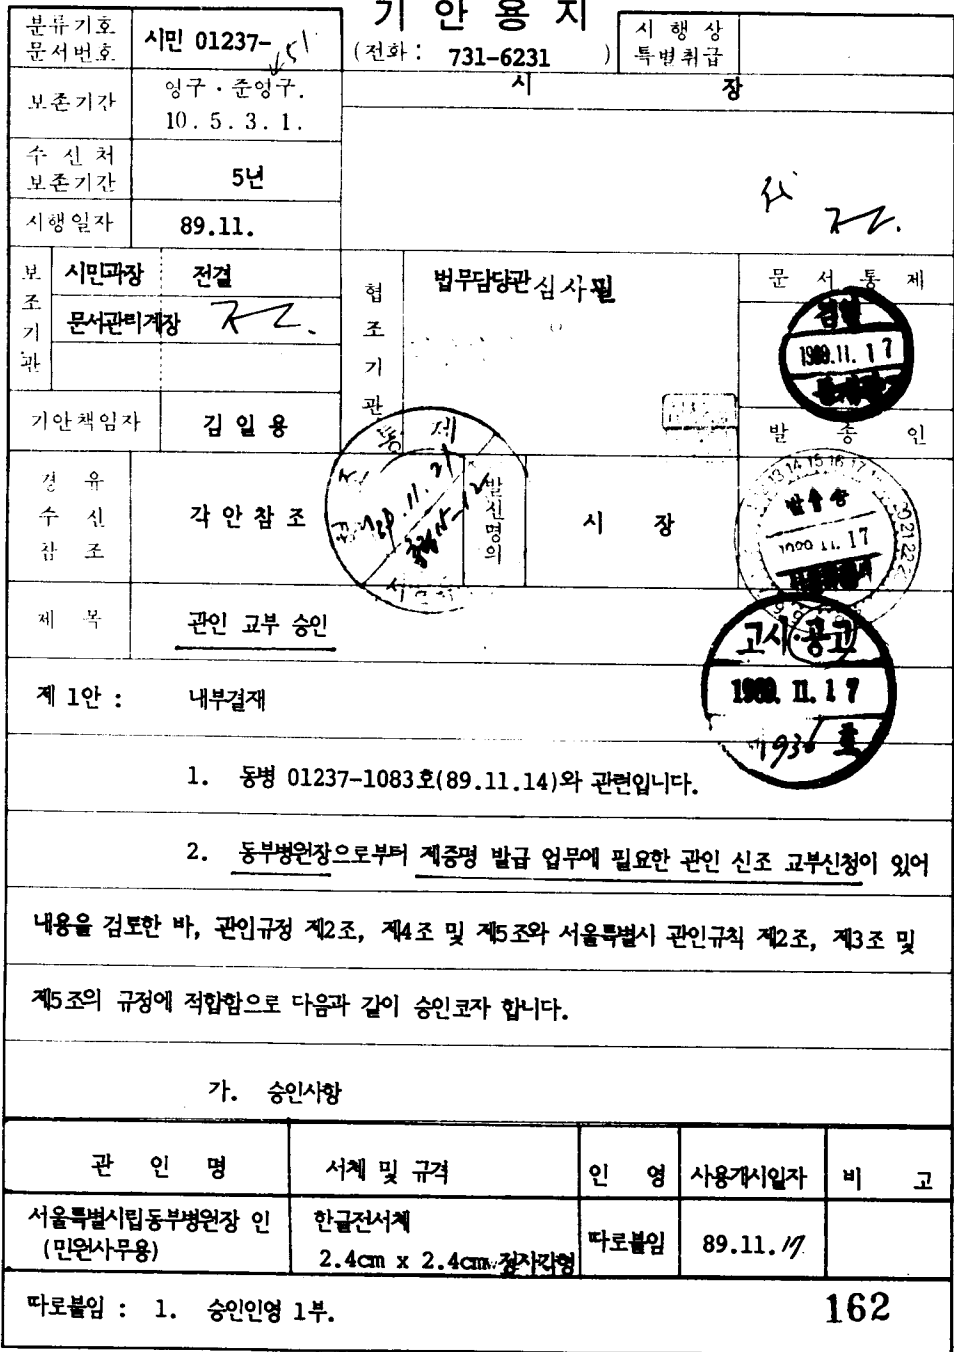 기 안 용 지
분류기호
문서번호
시민 01237-
(전화 : 731-6231 )
시 행 상
특별취급
보존기간
영구 · 준영구.
10. 5. 3. 1.
시 장
수 신 처
보존기간
5년
시행일자
89.11.
보조기관
시민과장 전결
문서관리계장
협조기관
법무담당관 심사필
문 서 통 제
1989.11.17
기안책임자
김 일 용
발 송 인
경 유
수 신
참 조
각 안 참 조
발신명의
시 장
11.17
제 목
관인 교부 승인
고시·공고
1989. 11. 17
제 1안 : 내부결재
1. 동병 01237-1083호(89.11.14)와 관련입니다.
2. 동부병원장으로부터 제증명 발급 업무에 필요한 관인 신조 교부신청이 있어
내용을 검토한 바, 관인규정 제2조, 제4조 및 제5조와 서울특별시 관인규칙 제2조, 제3조 및
제5조의 규정에 적합함으로 다음과 같이 승인코자 합니다.
가. 승인사항
관 인 명 서체 및 규격 인 영 사용개시일자 비 고
서울특별시립동부병원장 인
(민원사무용)
한글전서체
2.4cm x 2.4cm 정자각형
따로붙임
89.11.17
따로붙임 : 1. 승인인영 1부.
162